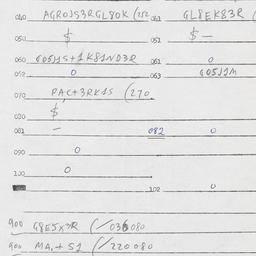 040 AGROJS3RGL80K (252 041 GL8EK83R (
050 $ 051 $ —
060 G05JJS+1K81ND3R 061 0
062 0 063 G05JJM
070 PAC+3RK1S (270
080 $
081 — 082 0
090 0
100 0
102 0
900 G8E5X3R (/036080
900 MA,+ S1 (/220080